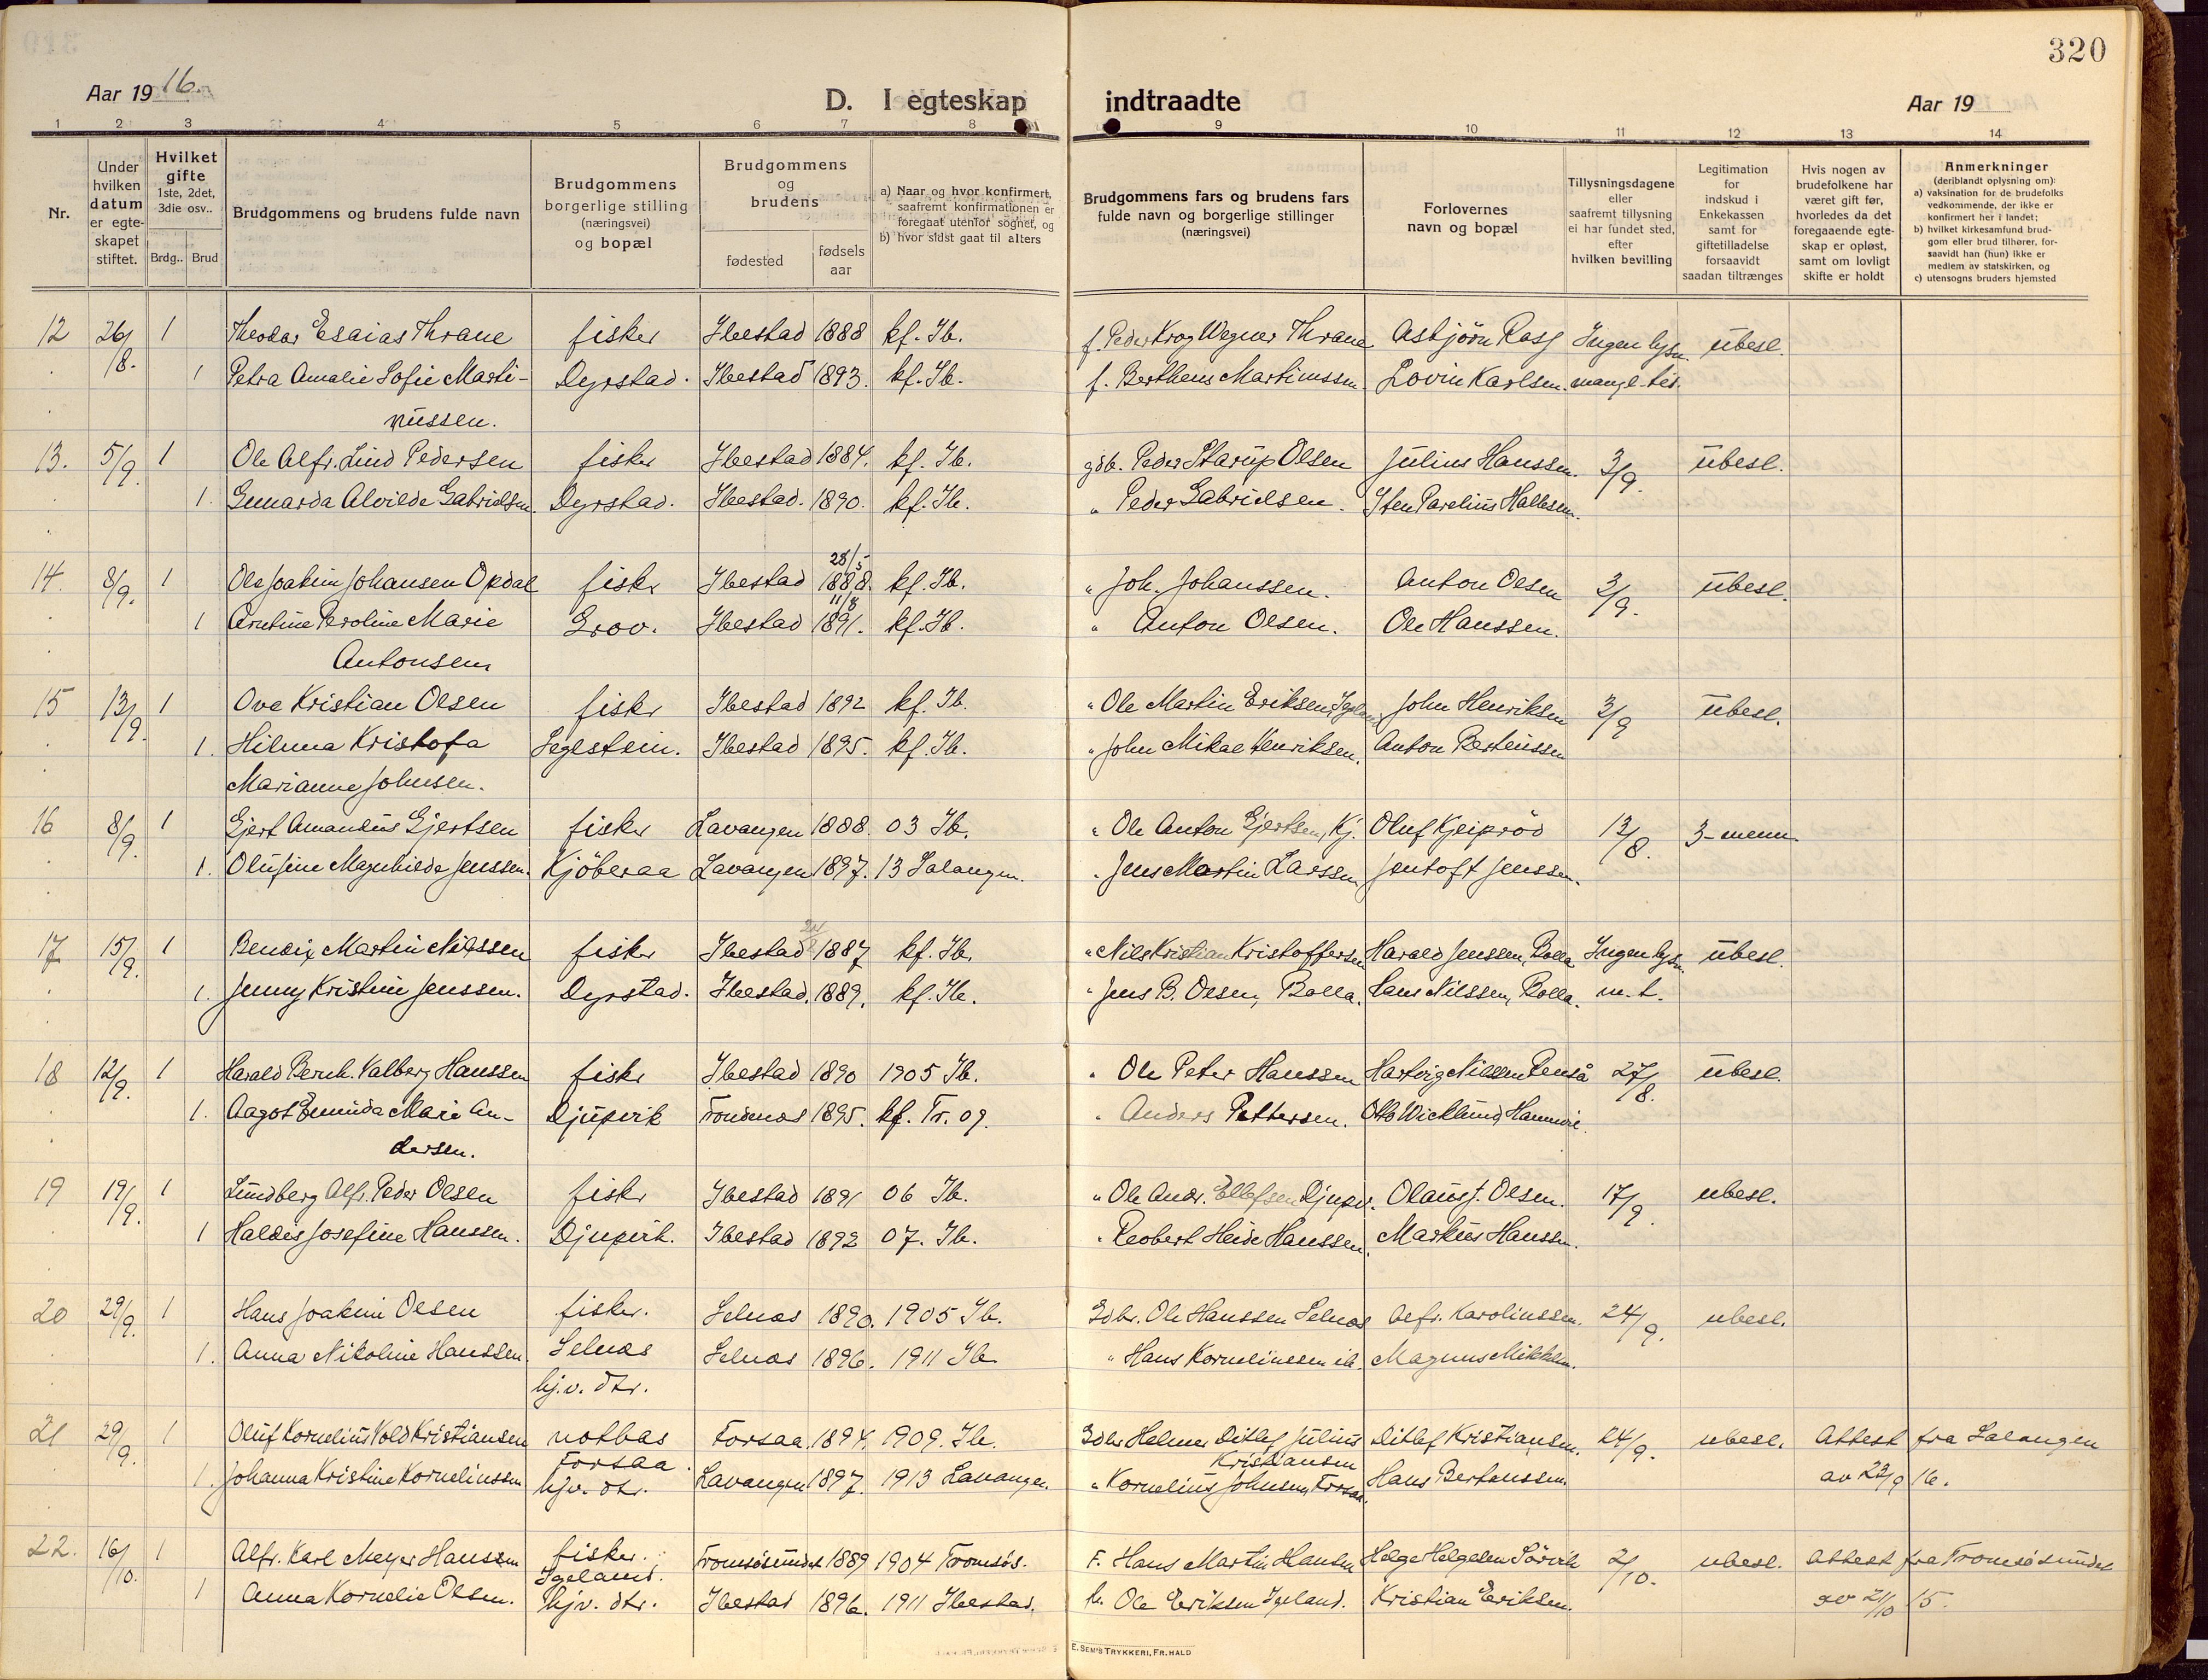 320
Aar 1916.
D. I egteskap indtraadte
Aar 19
1 2 3 4 5 6 7 8 9 10 11 12 13 14
Nr.
Under hvilken datum er egteskapet stiftet.
Hvilket gifte 1ste, 2det, 3die osv..
Brdg.. Brud
Brudgommens og brudens fulde navn
Brudgommens borgerlige stilling (næringsvei) og bopæl
Brudgommens og brudens
fødested
fødsels aar
a) Naar og hvor konfirmert, saafremt konfirmationen er foregaat utenfor sognet, og
b) hvor sidst gaat til alters
Brudgommens fars og brudens fars fulde navn og borgerlige stillinger (næringsvei)
Forlovernes navn og bopæl
Tillysningsdagene eller saafremt tillysning ei har fundet sted, efter hvilken bevilling
Legitimation for indskud i Enkekassen samt for giftetilladelse forsaavidt saadan tiltrænges
Hvis nogen av brudefolkene har været gift før, hvorledes da det foregaaende egteskap er opløst, samt om lovligt skifte er holdt
Anmerkninger (deriblandt oplysning om):
a) vaksination for de brudefolks vedkommende, der ikke er konfirmert her i landet;
b) hvilket kirkesamfund brudgom eller brud tilhører, forsaavidt han (hun) ikke er medlem av statskirken, og
c) utensogns bruders hjemsted
12 26/8. 1 Theodor Esaias Thrane fisker Ibestad 1888 kf. Ib. f. Peder Krog Wegner Thrane Asbjörn Ingen lysn. ubesl.
1 Petra Amalie Sofie Marti- Dyrstad. Ibestad 1893. kf. Ib. f. Bertheus Martinussen Lovin Karlsen.
nussen.
13. 5/9. 1 Ole Alfr. Lind Pedersen fisker Ibestad 1884. kf. Ib. gdb. Peder Starup Olsen Julius Hanssen. 3/9. ubesl.
1. Gunarda Alvilde Gabrielsen. Dyrstad. Ibestad. 1890. kf. Ib. " Peder Gabrielsen. Sten Parelius Hallesen.
14. 8/9. 1 Ole Joakim Johansen Opdal fisker Ibestad 28/5 1888. kf. Ib. " Joh. Johanssen. Anton Olsen 3/9. ubesl.
1 Antine Peroline Marie Grov. Ibestad 11/8 1891. kf. Ib. " Anton Olsen. Ole Hanssen.
Antonsen
15 13/9. 1 Ove Kristian Olsen fisker Ibestad 1892 kf. Ib. " Ole Martin Eriksen, Igeland John Henriksen 3/9 ubesl.
1. Hilma Kristofa Segelstein. Ibestad 1895. kf. Ib. " John Mikal Henriksen. Anton Berteussen
Marianne Johnsen.
16 8/9. 1 Gjert Amandus Gjertsen fisker Lavangen 1888. 03 Ib. " Ole Anton Gjertsen, Kj. Oluf Kjeipröd 13/8. 3-menn.
1. Olufine Magnhilda Jenssen. Kjöberaa Lavangen 1897. 13 Salangen. " Jens Martin Larssen Jentoft Jenssen.
17 15/9. 1 Bendix Martin Nilssen fisker Ibestad 1887 kf. Ib. " Nils Kristian Kristoffersen Harald Jenssen, Rolla Ingen lysn. ubesl.
1. Jenny Kristine Jenssen. Dyrstad. Ibestad. 1889. kf. Ib. " Jens B. Olsen, Rolla. Hans Nilssen, Rolla. m. t.
18 12/9. 1 Harald Bernh. Valberg Hanssen fisker Ibestad 1890 1905 Ib. " Ole Peter Hanssen Hartvig Nilssen Renså 27/8. ubesl.
1. Aagot Eminda Marie An- Djupvik Trondenes 1895. kf. Tr. 09. " Anders Pettersen. Otto Wicklund, Hamnvik.
dersen.
19 19/9. 1 Lundberg Alfr. Peder Olsen fisker Ibestad 1891 06 Ib. " Ole Andr. Ellefsen Djupv. Olaus J. Olsen. 17/9. ubesl.
1 Haldis Josefine Hanssen. Djupvik. Ibestad 1892 07. Ib. " Robert Heide Hanssen. Markus Hanssen.
20 29/9. 1 Hans Joakim Olsen fisker. Selnes 1890. 1905 Ib. Gdbr. Ole Hanssen Selnes Alfr. Karolinssen. 24/9. ubesl.
1. Anna Nikoline Hanssen Selnes Selnes 1896. 1911 Ib " Hans Korneliussen ib. Magnus Mikkelsen.
hj.v. dtr.
21 29/9. 1 Oluf Kornelius Vold Kristiansen notbas Forsaa. 1894. 1909. Ib. Gdbr Helmer Ditlef Julius Kristiansen Ditlef Kristiansen. 24/9. ubesl. Attest fra Salangen
1. Johanna Kristine Korneliussen Forsaa. hjv. dtr. Lavangen 1897. 1913 Lavangen. " Kornelius Johnsen, Forsaa. Hans Bertheussen. av 23/9 16.
22. 16/10. 1 Alfr. Karl Meyer Hanssen fisker. Tromsösundet 1889 1904 Tromsös. F. Hans Martin Hansen Helge Helgesen Sörvik 2/10. ubesl. Attest fra Tromsösundet
1 Anna Kornelie Olsen. Igeland. hjv. dtr. Ibestad 1896. 1911 Ibestad. b. Ole Eriksen Igeland. Kristian Eriksen. av 21/10 15.
E. SEM'S TRYKKERI, FR. HALD